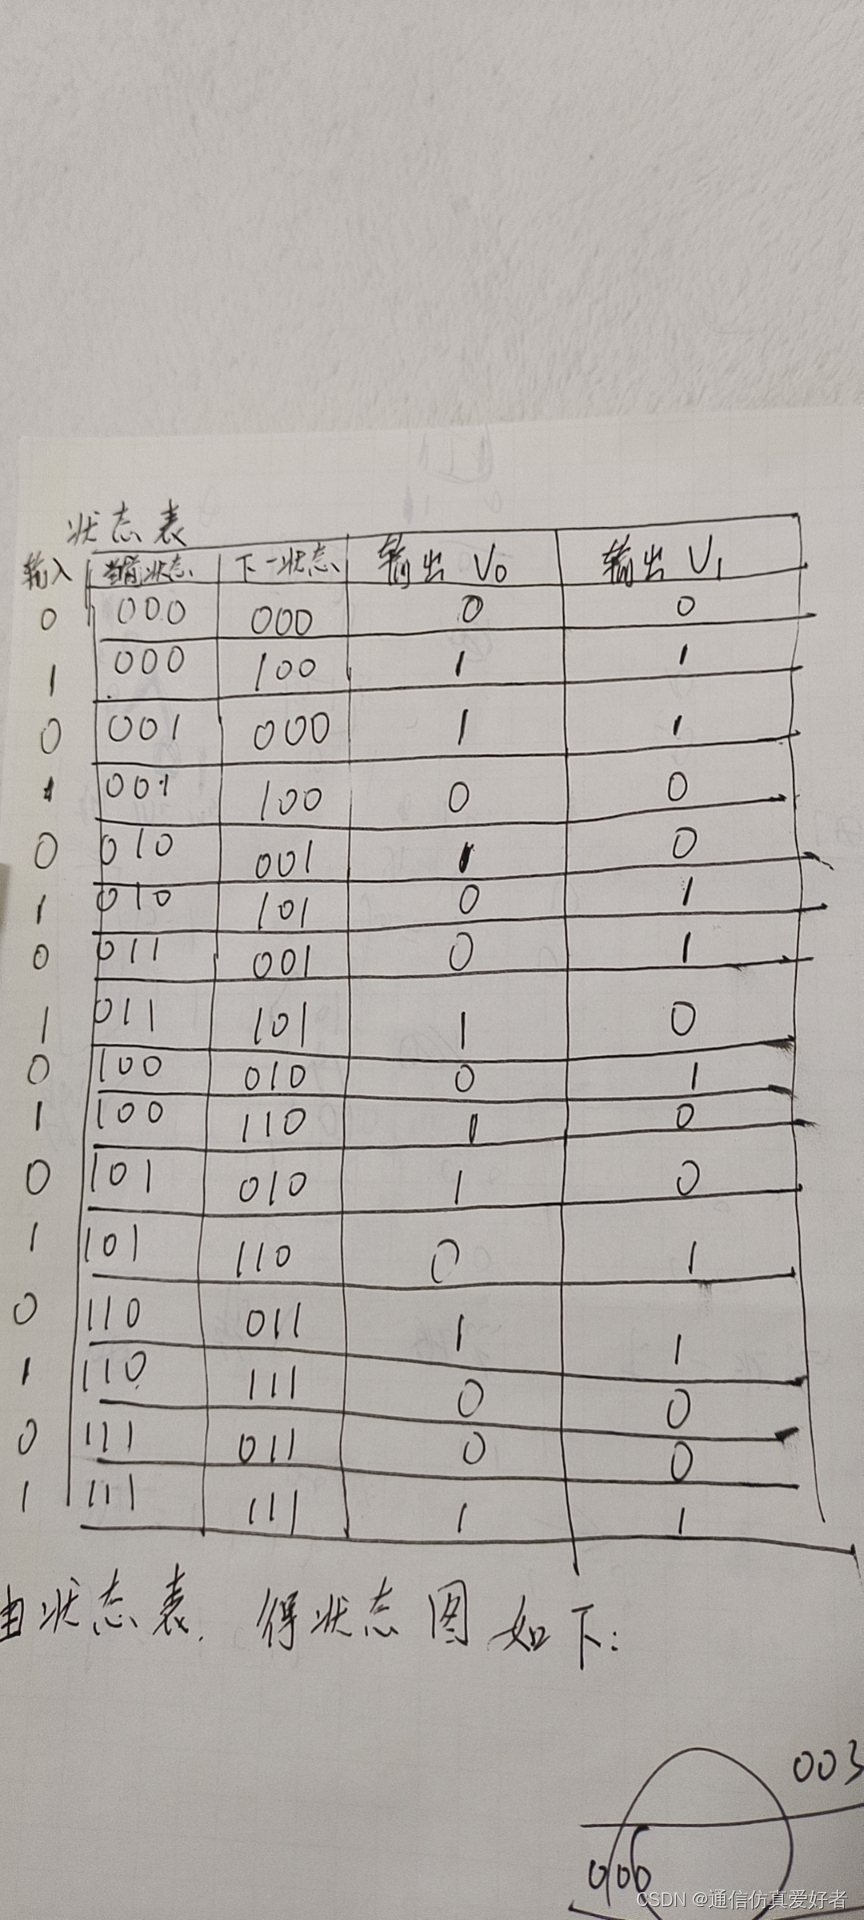 状态表
输入 当前状态 下一状态 输出 V0 输出 V1
0 000 000 0 0
1 000 100 1 1
0 001 000 1 1
1 001 100 0 0
0 010 001 1 0
1 010 101 0 1
0 011 001 0 1
1 011 101 1 0
0 100 010 0 1
1 100 110 1 0
0 101 010 1 0
1 101 110 0 1
0 110 011 1 1
1 110 111 0 0
0 111 011 0 0
1 111 111 1 1
由状态表. 得状态图如下:
003
000
CSDN @通信仿真爱好者